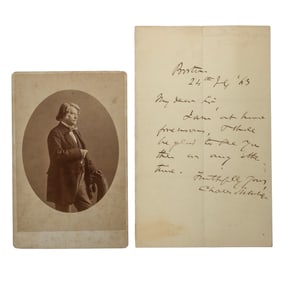 Boston
24th July '63
My dear Sir,
I am at home
I shall
be glad to see you
then or any other
time.
Faithfully yours
Charles Sumner